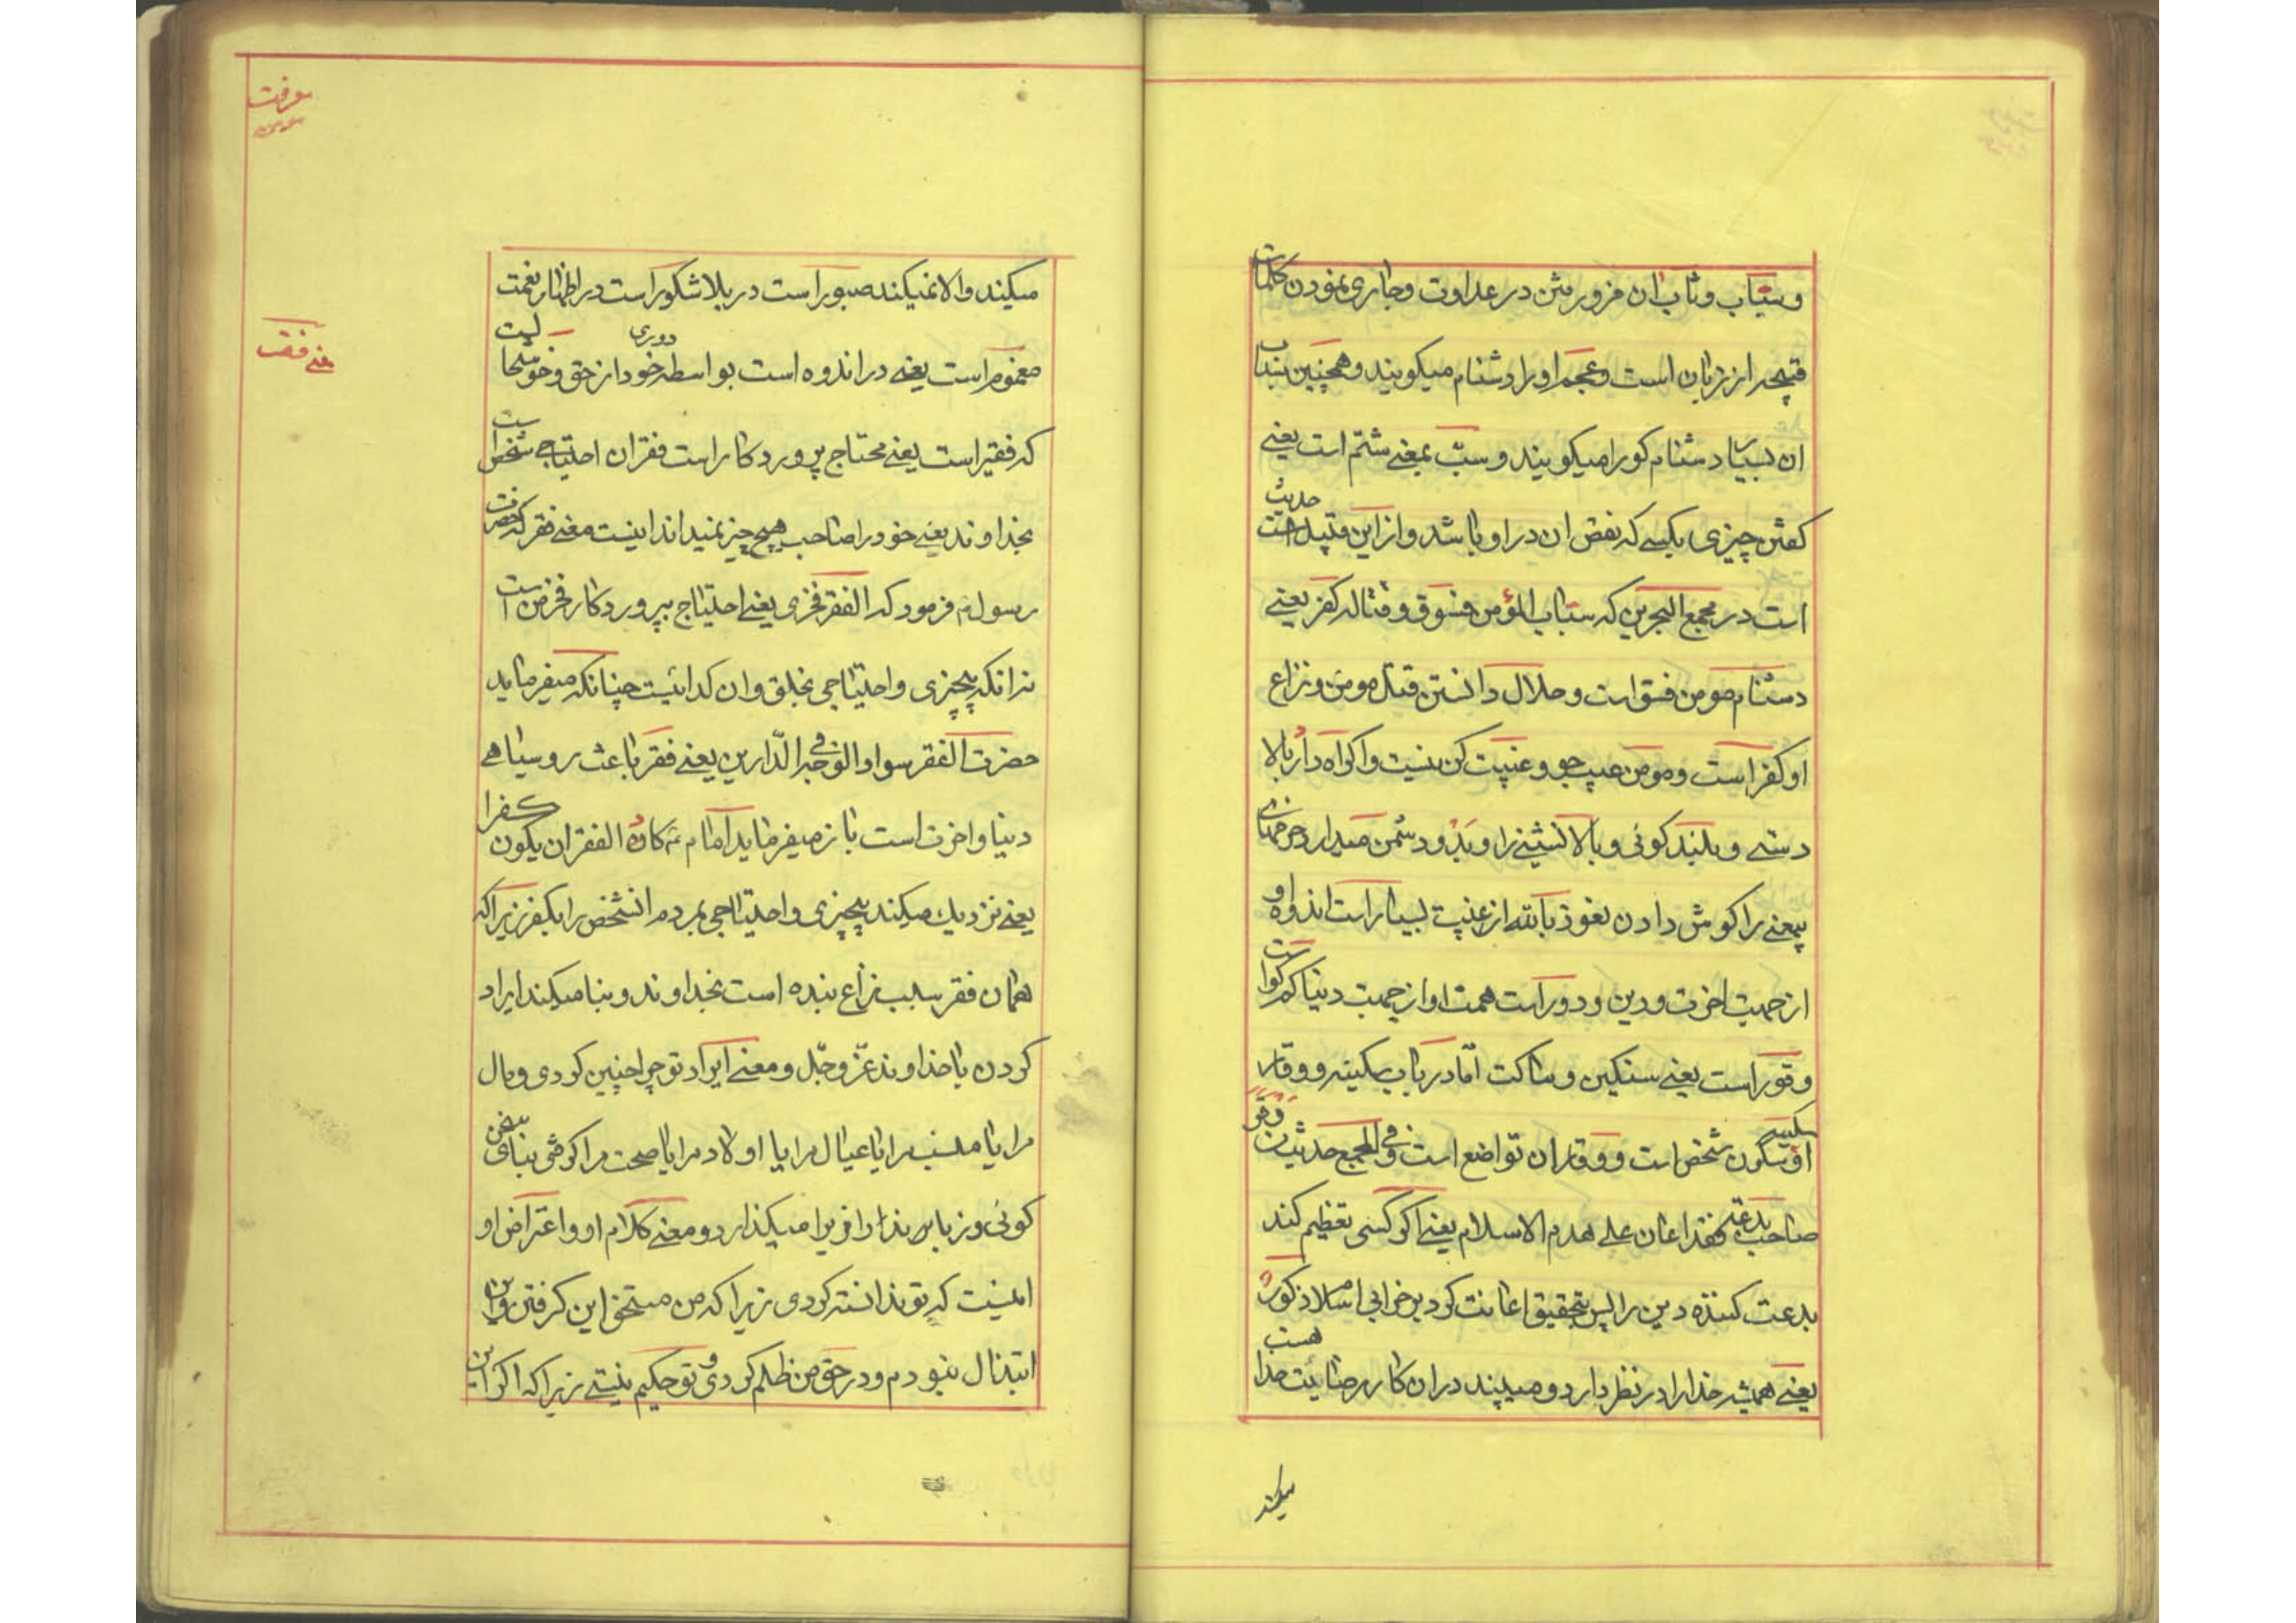 وسبّاب وثاب ان فرو رفتن در عداوت وجاری نمودن کلمات
قبیحه از زبان است وعجم او را دشنام میکویند وهمچنین سباب
ان بسیار دشنام کو را میکویند وسبّ بمعنے شتم است یعنے
کفتن چیزی بکسے که نقص ان در او باشد واز این قبیل است حدیث
است در مجمع البحرین که سباب المؤمن فسوق وقتاله کفر یعنے
دشنام مومن فسق است وحلال دانستن قتل مومن ونزاع
او کفر است ومومن عیب جو وغیبت کن نیست واکراه دارد بالا
دستے وبلند کوئی وبالا نشینے را وبد ودشمن میدارد
را کوش دادن نعوذ بالله از غیبت بسیار است اندوه او
از جهت اخرت ودین ودور است همت او از جهت دنیا کم کو است
وقور است یعنے سنکین وساکت امّا در باب سکینه ووقار
سکینه او سکون شخص است ووقار ان تواضع است وفی المجمع حدیث من وقر
صاحب بدعته فقد اعان علے هدم الاسلام یعنے اکر کسی تعظیم کند
بدعت کننده دین را پس بتحقیق اعانت کرد بر خرابی اسلام ذکور
یعنے همیشه خدا را در نظر دارد ومیبیند در ان کار رضائیت خدا هست
میکند
معرفت
میکند والا نمیکند صبور است در بلا شکور است در اظهار نعمت
مغموم است یعنے در اندوه است بواسطه دوری خود از حق وخوشحالیست
معنے فقر
که فقیر است یعنے محتاج پروردکار است فقر ان احتیاجے شخص است
بخداوند یعنے خود را صاحب هیچ چیز نمیداند اینست معنے فقر که حضرت
رسول م فرمود که الفقر فخری یعنے احتیاج بپروردکار فخر من است
نه انکه بیچیزی واحتیاجی بخلق وان کدائیست چنانکه میفرماید
حضرت الفقر سواد الوجه فی الدّارین یعنے فقر باعث روسیاهے
دنیا واخرت است باز میفرماید امام ع کاد الفقر ان یکون کفرا
یعنے نزدیك میکند بیچیزی واحتیاجی بمردم انشخص را بکفر زیرا که
همان فقر سبب نزاع بنده است بخداوند وبنا میکند ایراد
کردن با خداوند عزّ وجلّ ومعنے ایراد تو چرا چنین کردی ومال
مرا یا منصب مرا یا عیال مرا یا اولاد مرا یا صحت مرا کرفتی بنای سخن
کوئی وزبان درازا را میکذارد ومعنے کلام او واعتراض او
اینست که تو ندانسته کردی زیرا که من مستحق این کرفتن واین
ابتذال نبودم ودر حق من ظلم کردی وتو حکیم نیستے زیرا که اکر این